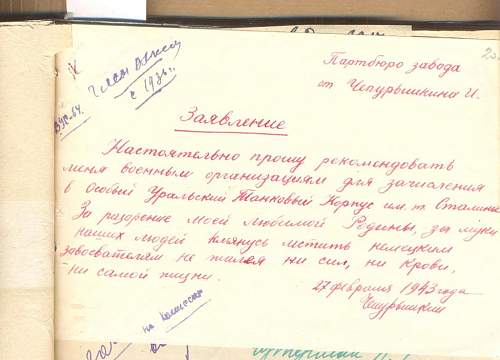 Партбюро завода
от Чепурышкина И.
член ВЛКСМ
с 1936 г.
ВУС-64.
Заявление
Настоятельно прошу рокомондовать
меня военным организациям для зачисления
в Особый Уральский Танковый Корпус им. т. Сталина.
За разорение моей любимой Родины, за муки
наших людей клянусь мстить немецким
завоевателям не жалея ни сил, ни крови,
ни самой жизни.
27 февраля 1943 года
Чепурышкин
на